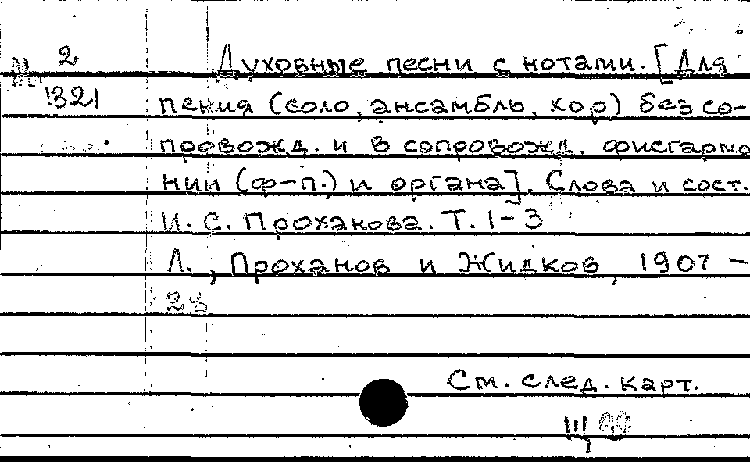 М 2
1321
Духовные песни с нотами. [Для
пения (соло, ансамбль, хор) без со-
провожд. и в сопровожд. фисгармо
нии (ф-п.) и органа]. Слова и сост.
И. С. Проханова. Т. 1-3
Л., Проханов и Жидков, 1907 -
28
См. след. карт.